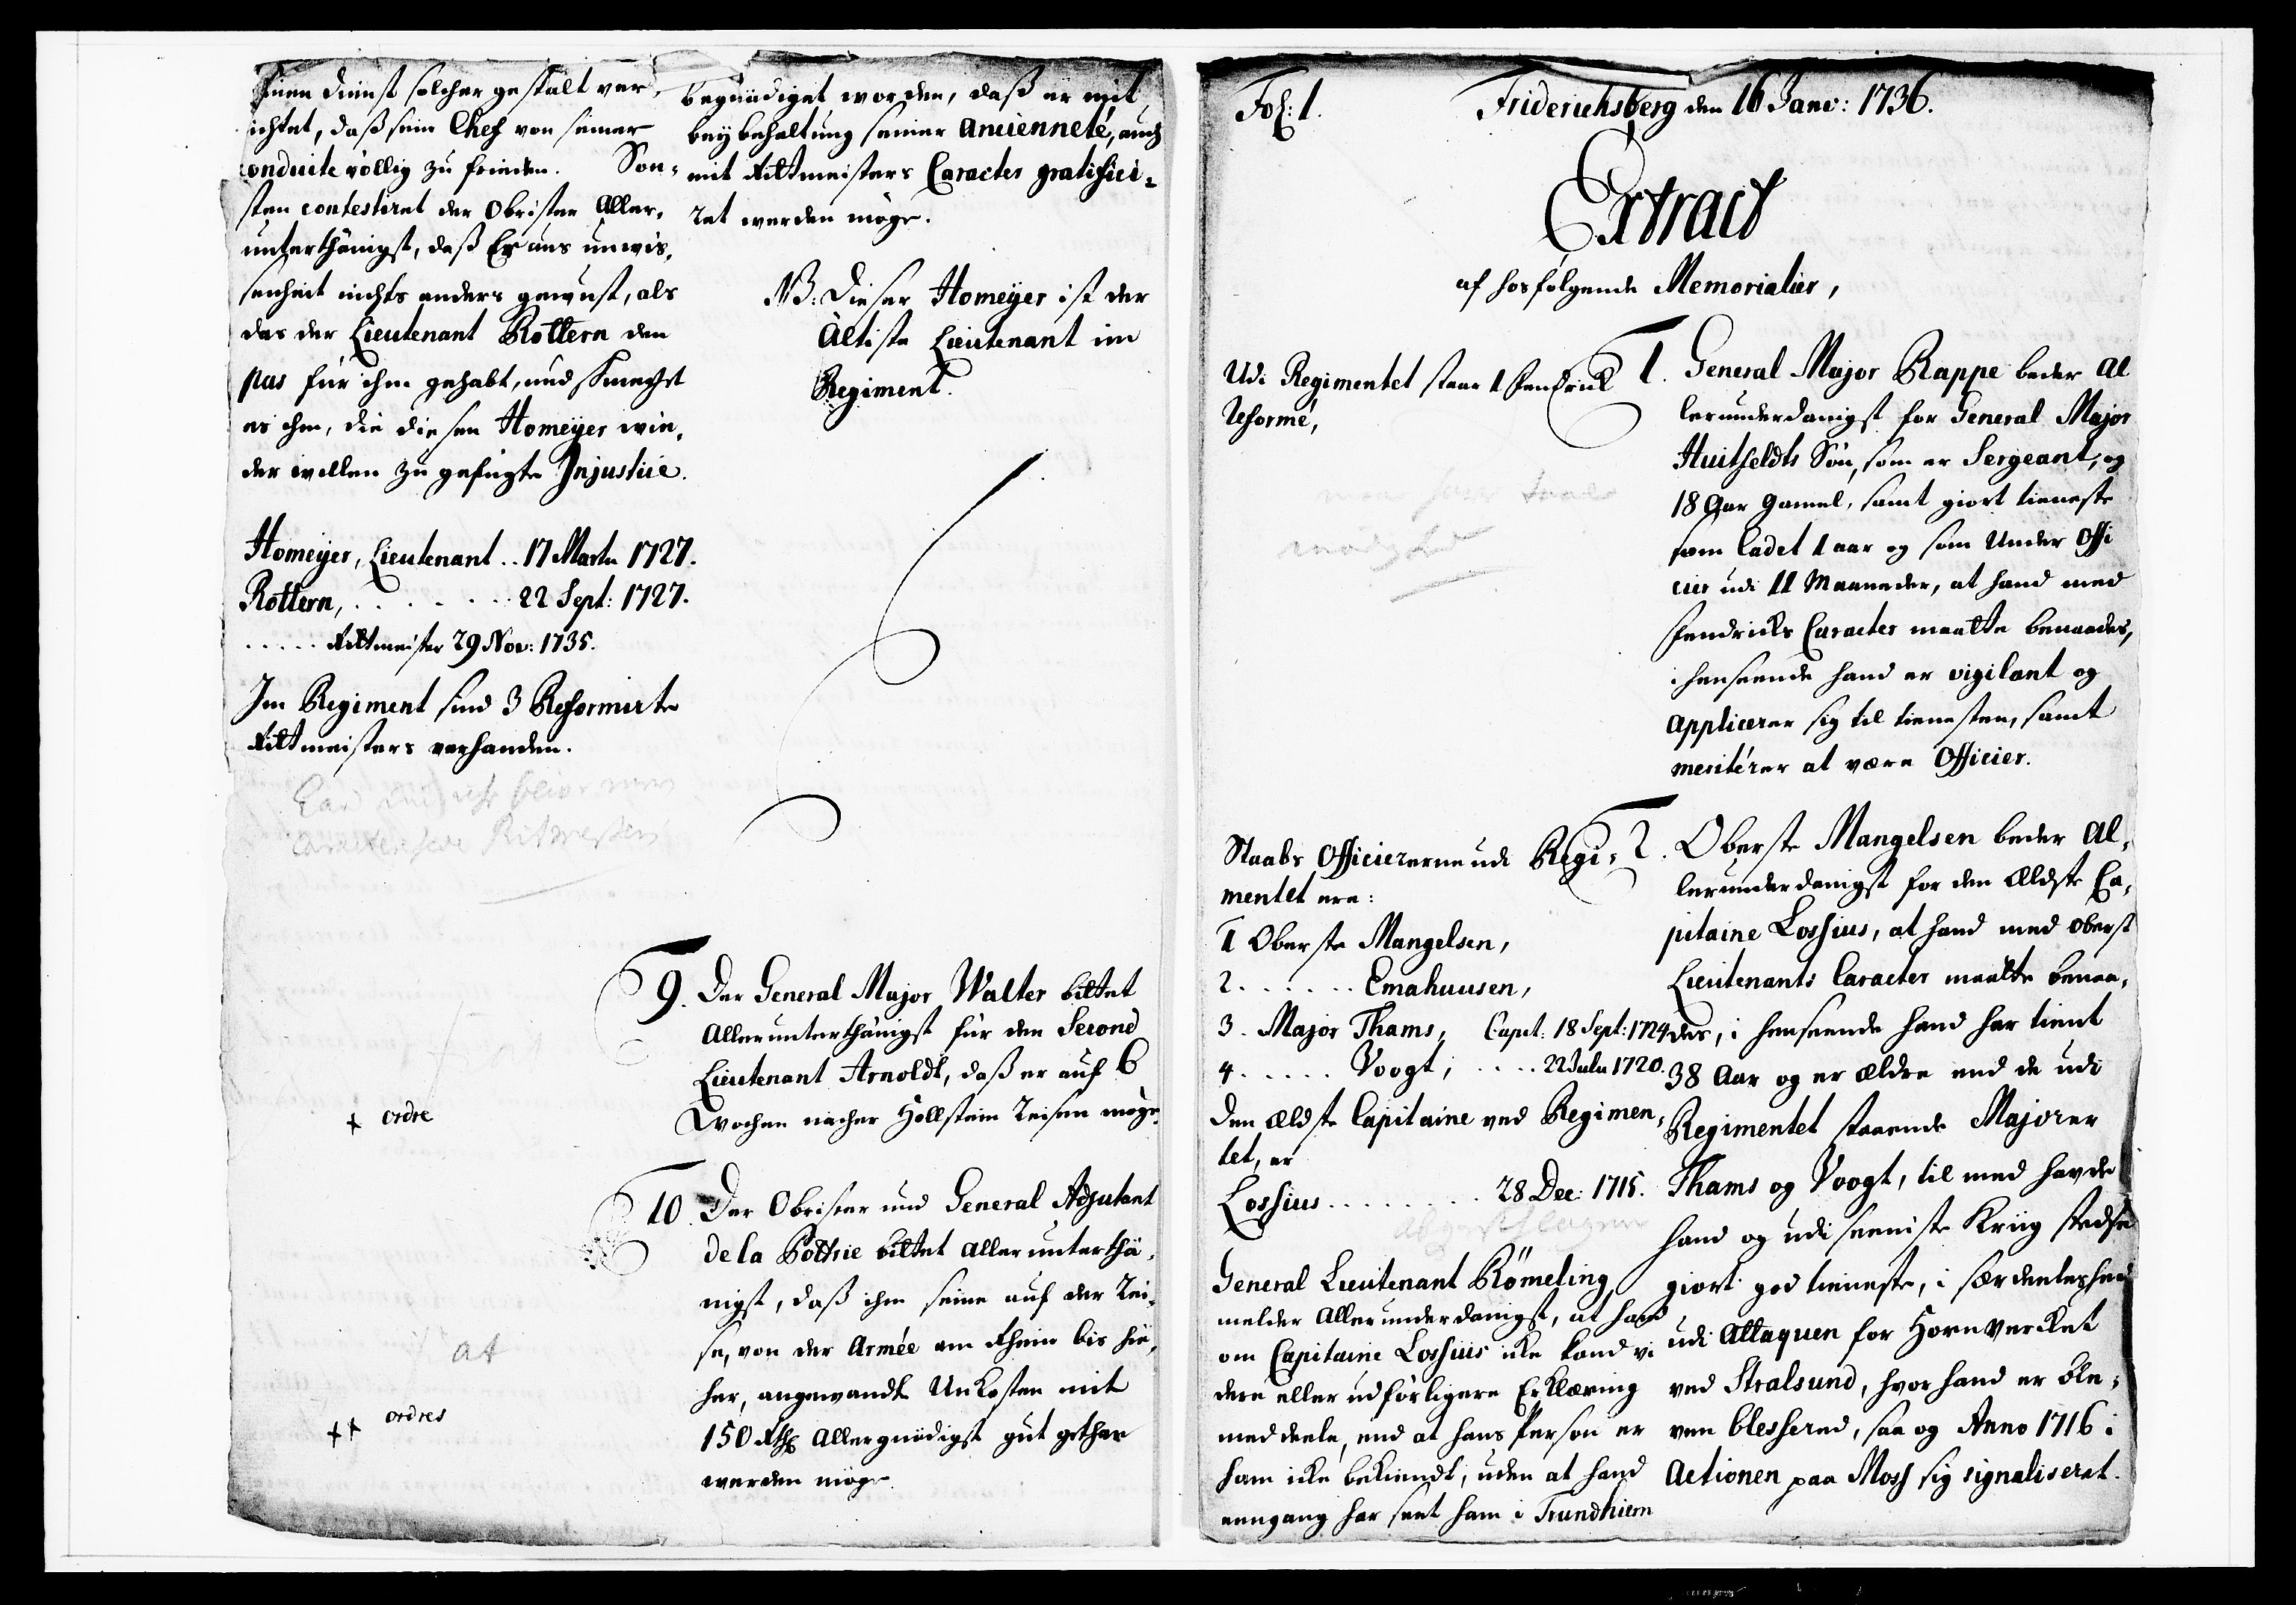 einen dienst solcher gestalt ver,
ichtet, daß sein Chef von seiner
conduite völlig zu frieden. Son,
sten contestiret der Obrister Aller,
unterthänigst, daß Er aus unwis,
senheit nichts anders gewust, als
das der Lieutenant Rottern den
pas für ihm gehabt, und schmertzet
es ihm, die diesen Homeÿer wie,
der willen zu gefügte Injustice.
Homeÿer, Lieutenant .. 17 Marty 1727.
Rottern, . . . . . . 22 Sept: 1727.
. . . . . Rittmeister 29 Nov: 1735.
Im Regiment sind 3 Reformirte
Rittmeisters verhanden.
+ ordre
at
++ ordres
begnädiget worden, daß er mit
beÿbehaltung seiner Ancienneté, auch
mit Rittmeisters Caracter gratifici,
ret werden möge.
NB: Dieser Homeÿer ist der
Ältiste Lieutenant im
Regiment.
9. Der General Major Walter bittet
Allerunterthänigst für den Second
Lieutenant Arnoldt, daß er auf 6
Wochen nacher Hollstein reisen möge.
10. Der Obrister und General Adjutant
de la Pottrie bittet Allerunterthä,
nigst, daß ihm seine auf der Rei,
se, von der Armée am Rhein bis hie,
her, angewandt Unkosten mit
150 Rthl Allergnädigst gut gethan
werden möge.
Fol: 1.
Friderichsberg den 16 Janv: 1736.
Extract
af hosfølgende Memorialier,
Udi Regimentet staar 1 Fendrick
Reformé,
1. General Major Rappe beder Al
lerunderdanigst for General Major
Huitfeldts Søn, som er Sergeant, og
18 Aar gamel, samt giort tieneste
som Cadet 1 aar og som Under Offi
cier udi 11 Maaneder, at hand med
Fendricks Caracter maatte benaades,
i henseende hand er vigilant og
Applicerer sig til tienesten, samt
meritérer at være Officier.
Staabs Officiererne udi Regi,
mentet ere:
1 Oberste Mangelsen,
2. . . . . . Emahuusen,
3. Major Thams, Capt: 18 Sept: 1724
4. . . . . Voogt, . . . . 22 July 1720.
Den ældste Capitaine ved Regimen,
tet, er
Lossius . . . . . . . . 28 Dec: 1715.
General Lieutenant Römeling
melder Allerunderdanigst, at hand
om Capitaine Lossius icke kand vi
dere eller udførligere Erklæring
meddeele, end at hans Person er
ham icke bekiendt, uden at hand
eengang har seet ham i Trundhiem
2. Oberste Mangelsen beder Al,
lerunderdanigst for den Ældste Ca,
pitaine Lossius, at hand med Oberst
Lieutenants Caracter maatte benaa,
des, i henseende hand har tient
38 Aar og er ældre end de udi
Regimentet staaende Majorer
Thams og Voogt, til med havde
hand og udi seeniste Kriig stedse
giort god tieneste, i særdeeleshed
udi Attaquen for Hornvercket
ved Stralsund, hvor hand er ble,
ven blessered, saa og Anno 1716 i
Actionen paa Moss sig signaliseret.